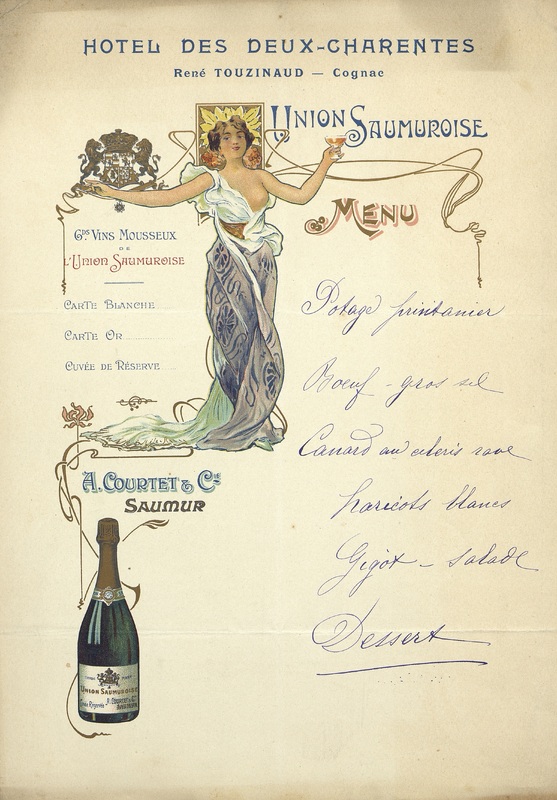 HOTEL DES DEUX-CHARENTES
René TOUZINAUD — Cognac
UNION SAUMUROISE
MENU
Gds VINS MOUSSEUX
DE
L'UNION SAUMUROISE
CARTE BLANCHE
CARTE OR
CUVÉE DE RÉSERVE
A. COURTET & Cie
SAUMUR
Potage printanier
Boeuf - gros sel
Canard au céleris rave
haricots blancs
Gigot - salade
Dessert
UNION SAUMUROISE